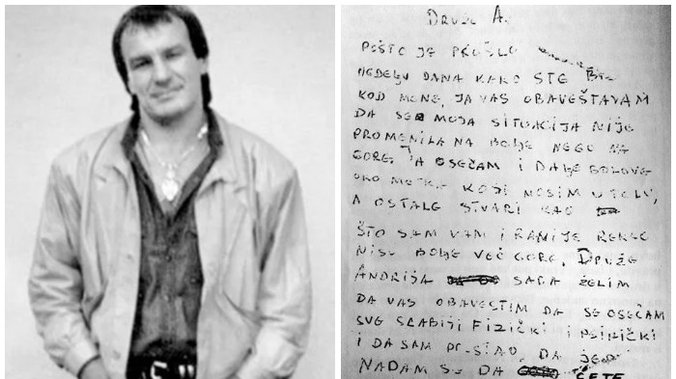 DRUŽE A.
POŠTO JE PROŠLO
NEDELJU DANA KAKO STE
KOD MENE, JA VAS OBAVEŠTAVAM
DA SE MOJA SITUACIJA NIJE
PROMENILA NA BOLJE NEGO NA
GORE. JA OSEĆAM I DALJE BOLOVE
OKO METKA KOJI NOSIM U TELU,
A OSTALE STVARI KAO
ŠTO SAM VAM I RANIJE REKAO
NISU BOLJE VEĆ GORE. DRUŽE
ANDRIJA SADA ŽELIM
DA VAS OBAVESTIM DA SE OSEĆAM
SVE SLABIJI FIZIČKI I PSIHIČKI
I DA SAM PRESTAO DA JEDEM
NADAM SE DA ĆETE